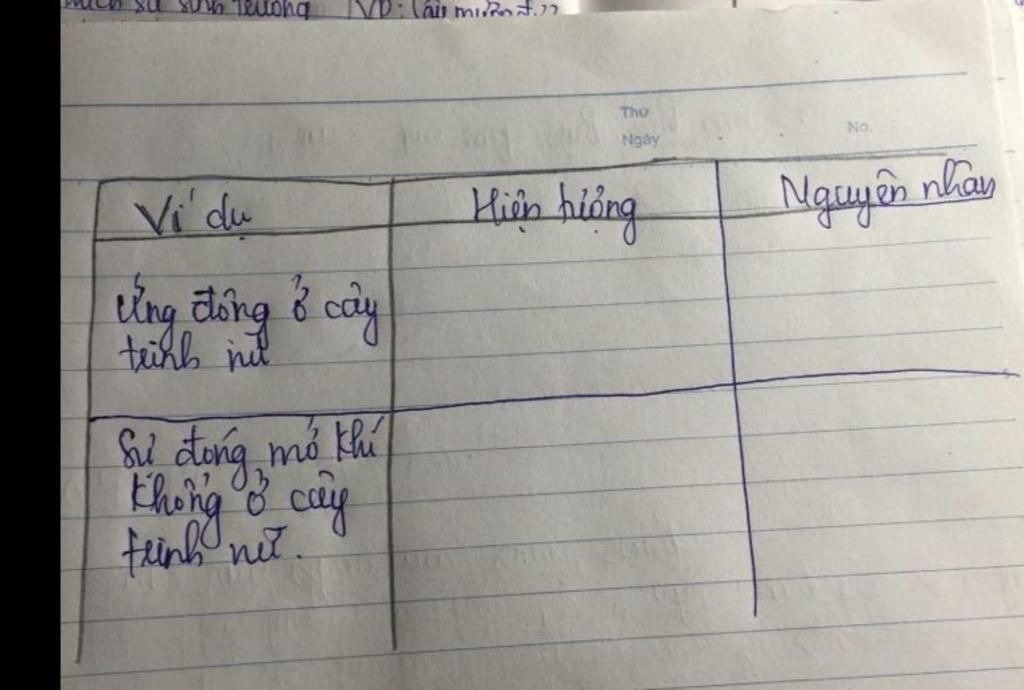 sự sinh trưởng VD:
Thứ
Ngày
No.
Ví dụ
Hiện tượng
Nguyên nhân
Ứng động ở cây
trinh nữ
Sự đóng mở khí
khổng ở cây
trinh nữ.